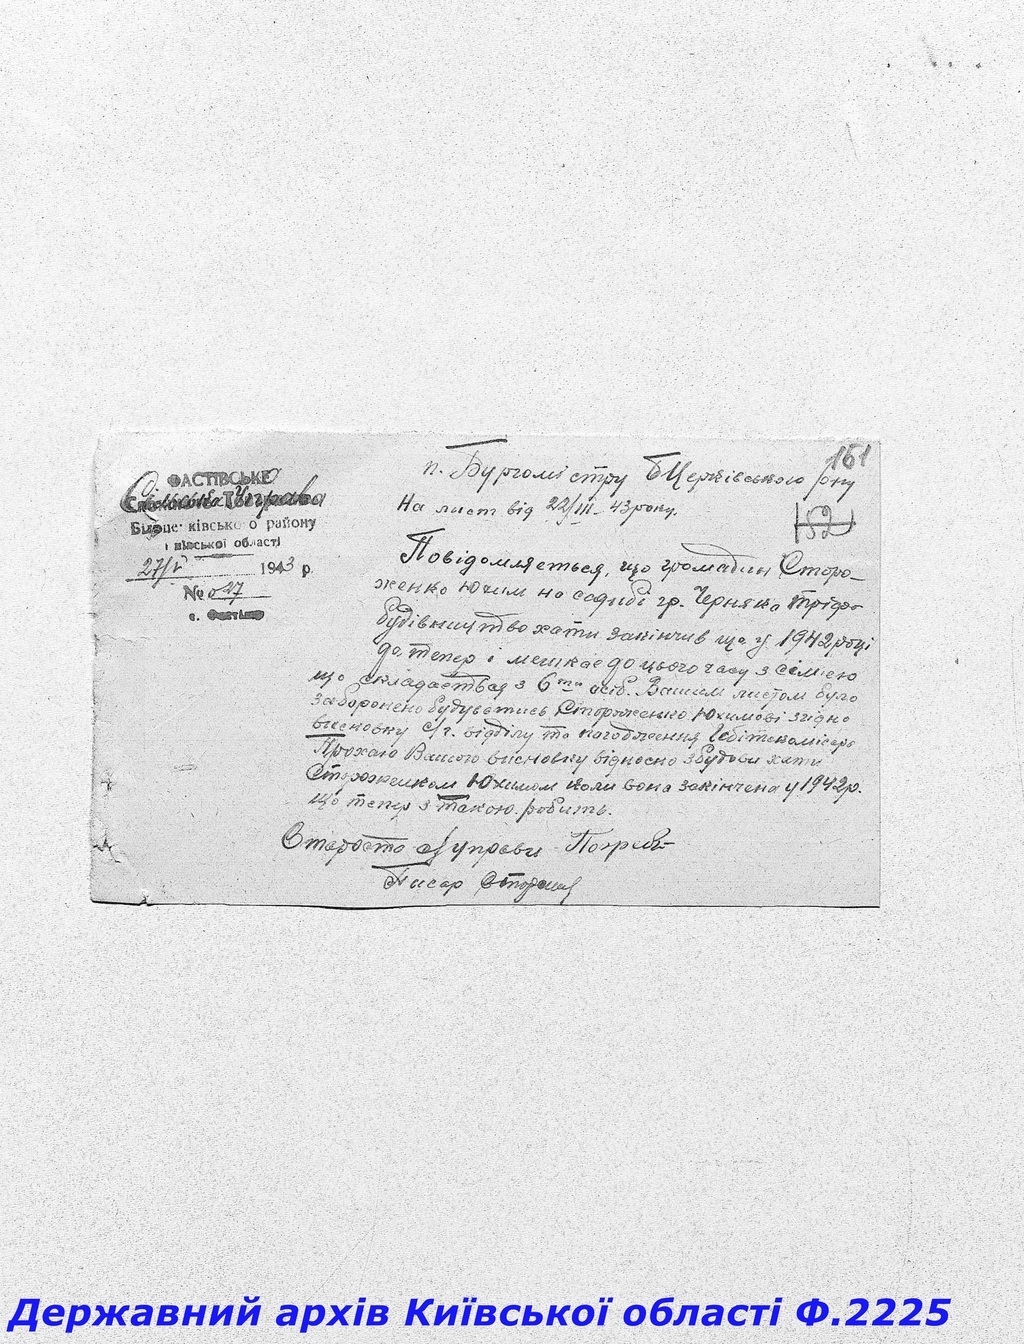 161
152
ФАСТІВСЬКЕ
Сільська Управа
Білоцерківського району
Київської області
27/V 1943 р.
№ 27
с. Фастівка
п. Бургомістру БЦерківського р/ну
На лист від 22/III - 43 року.
Повідомляється, що громадин Сторо-
женко Юхим на садибі гр. Черняка
будівництво хати закінчив ще у 1942 році
до тепер і мешкає до цього часу з сємією
що складається з 6ти осіб. Вашим листом було
заборонено будуватись Стороженко Юхимові згідно
висновку с/г. відділу та погодження Гебітскомісара
Прохаю Вашого висновку відносно збудови хати
Стороженком Юхимом коли вона закінчена у 1942 р.
що тепер з такою робить.
Староста с/управи
Писар
Державний архів Київської області Ф.2225